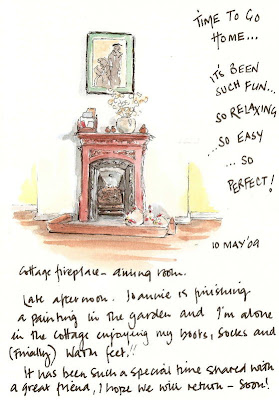 TIME TO GO
HOME...
IT'S BEEN
SUCH FUN...
SO RELAXING
...SO EASY
... SO
PERFECT!
10 MAY '09
Cottage fireplace - dining room.
Late afternoon. Joannie is finishing
a painting in the garden and I'm alone
in the cottage enjoying my boots, socks and
(finally) warm feet!!
It has been such a special time shared with
a great friend, I hope we will return - soon!